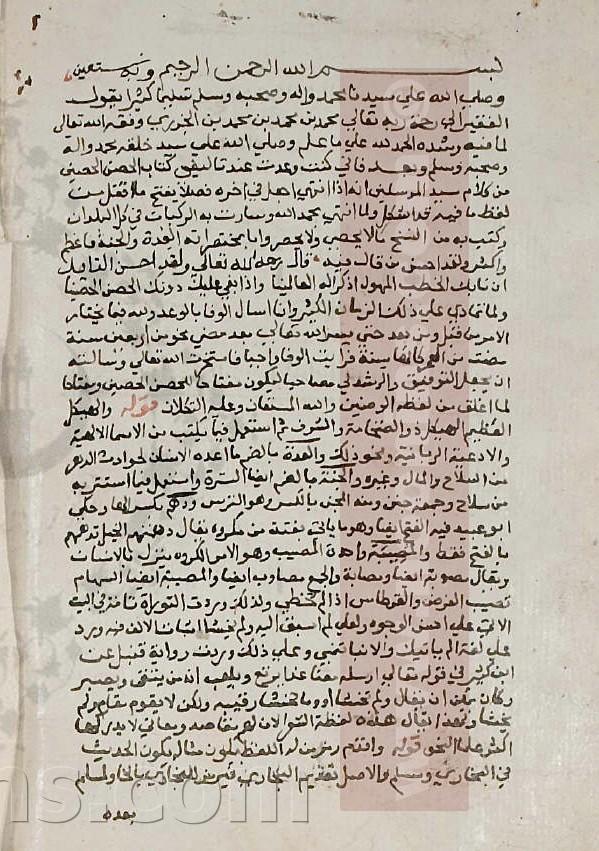 بسم الله الرحمن الرحيم وبه نستعين
وصلى الله علي سيدنا محمد واله وصحبه وسلم تسليما كثيرا يقول
الفقير الي رحمة ربه تعالي محمد بن محمد بن محمد بن الجزري وفقه الله تعالي
لما فيه رشده الحمد لله علي ما علم وصلي الله علي سيد خلقه محمد واله
وصحبه وسلم وبعد فاني كنت وعدت عند تاليفي كتاب الحصن الحصين
من كلام سيد المرسلين انه اذا انتهي اجعل في اخره فصلا يفتح ما قفل من
لفظ ما فيه قد اشكل ولما انتهي بحمد الله وسارت به الركبان في كل البلدان
وكتب به من النسخ ما لا يحصي ولا يحصر واما مختصراته العدة والجنة فاعظم
واكثر ولقد احسن من قال فيه قال رحمه الله تعالي ولقد احسن القايل
ان نابك الخطب المهول اذكر اله العالمينا واذا بغي عليك دونك الحصن الحصينا
ولما تمادي علي ذلك الزمان الكثير وانا اسال الوفا بالوعد ولله فيما يختار
الامر من قبل ومن بعد حتي يسر الله تعالي بعد مضي نحو من اربعين سنة
مضت من فرايت الوفا واجبا فاستخرت الله تعالي وسالته
ان يجعل التوفيق والرشد لي مصاحبا ليكون مفتاحا للحصن الحصين ومفتاحا
لما اغلق من لفظه الرصين والله المستعان وعليه التكلان قوله والهيكل
العظيم الهيكل ذو الضخامة والشرف ثم استعمل فيما يكتب من الاسما الالهية
والادعية الربانية ونحو ذلك والعدة بالضم ما اعده الانسان لحوادث الدهر
من السلاح والمال وغيره والجنة بالضم ايضا السترة واستعمل فيما استتر به
من سلاح وجمعه جنن ومنه المجن بالكسر وهو الترس ودهم بكسر الها وحكي
ابو عبيد فيه الفتح ايضا وهو ما ياتي بغتة من مكروه يقال دهمتهم الخيل تدهمهم
بالفتح فقط والمصيبة واحدة المصايب وهو الامر المكروه ينزل بالانسان
ويقال مصوبة ايضا ومصابة والجمع مصاوب ايضا والمصيبة ايضا السهام
تصيب الغرض والقرطاس اذا لم تخطي ولذلك وردت التورية
علي احسن الوجوه ولعلي لم اسبق اليه ولم يخش اثبات الالف فيه ورد
علي لغة الم ياتيك والانبا تنمي وعلي ذلك وردت رواية قنبل عن
ابن كثير في قوله تعالي ارسله معنا غدا يرتع ويلعب انه من يتقي ويصبر
وكان يمكن ان يقال ولم تخشا او وما تخشا رقيبه ولكن لا يقوم مقام ولم
يخشا وبهذا يقال هذه لفظة الشعر الان لهم مقاصد ومعاني لا يدركها
اكثر علما النحو قوله واقدم رمز من له اللفظ يكون مثاله يكون الحديث
في البخاري ومسلم والاصل تقديم البخاري فيرمز للبخاري بالخا ولمسلم
بعده